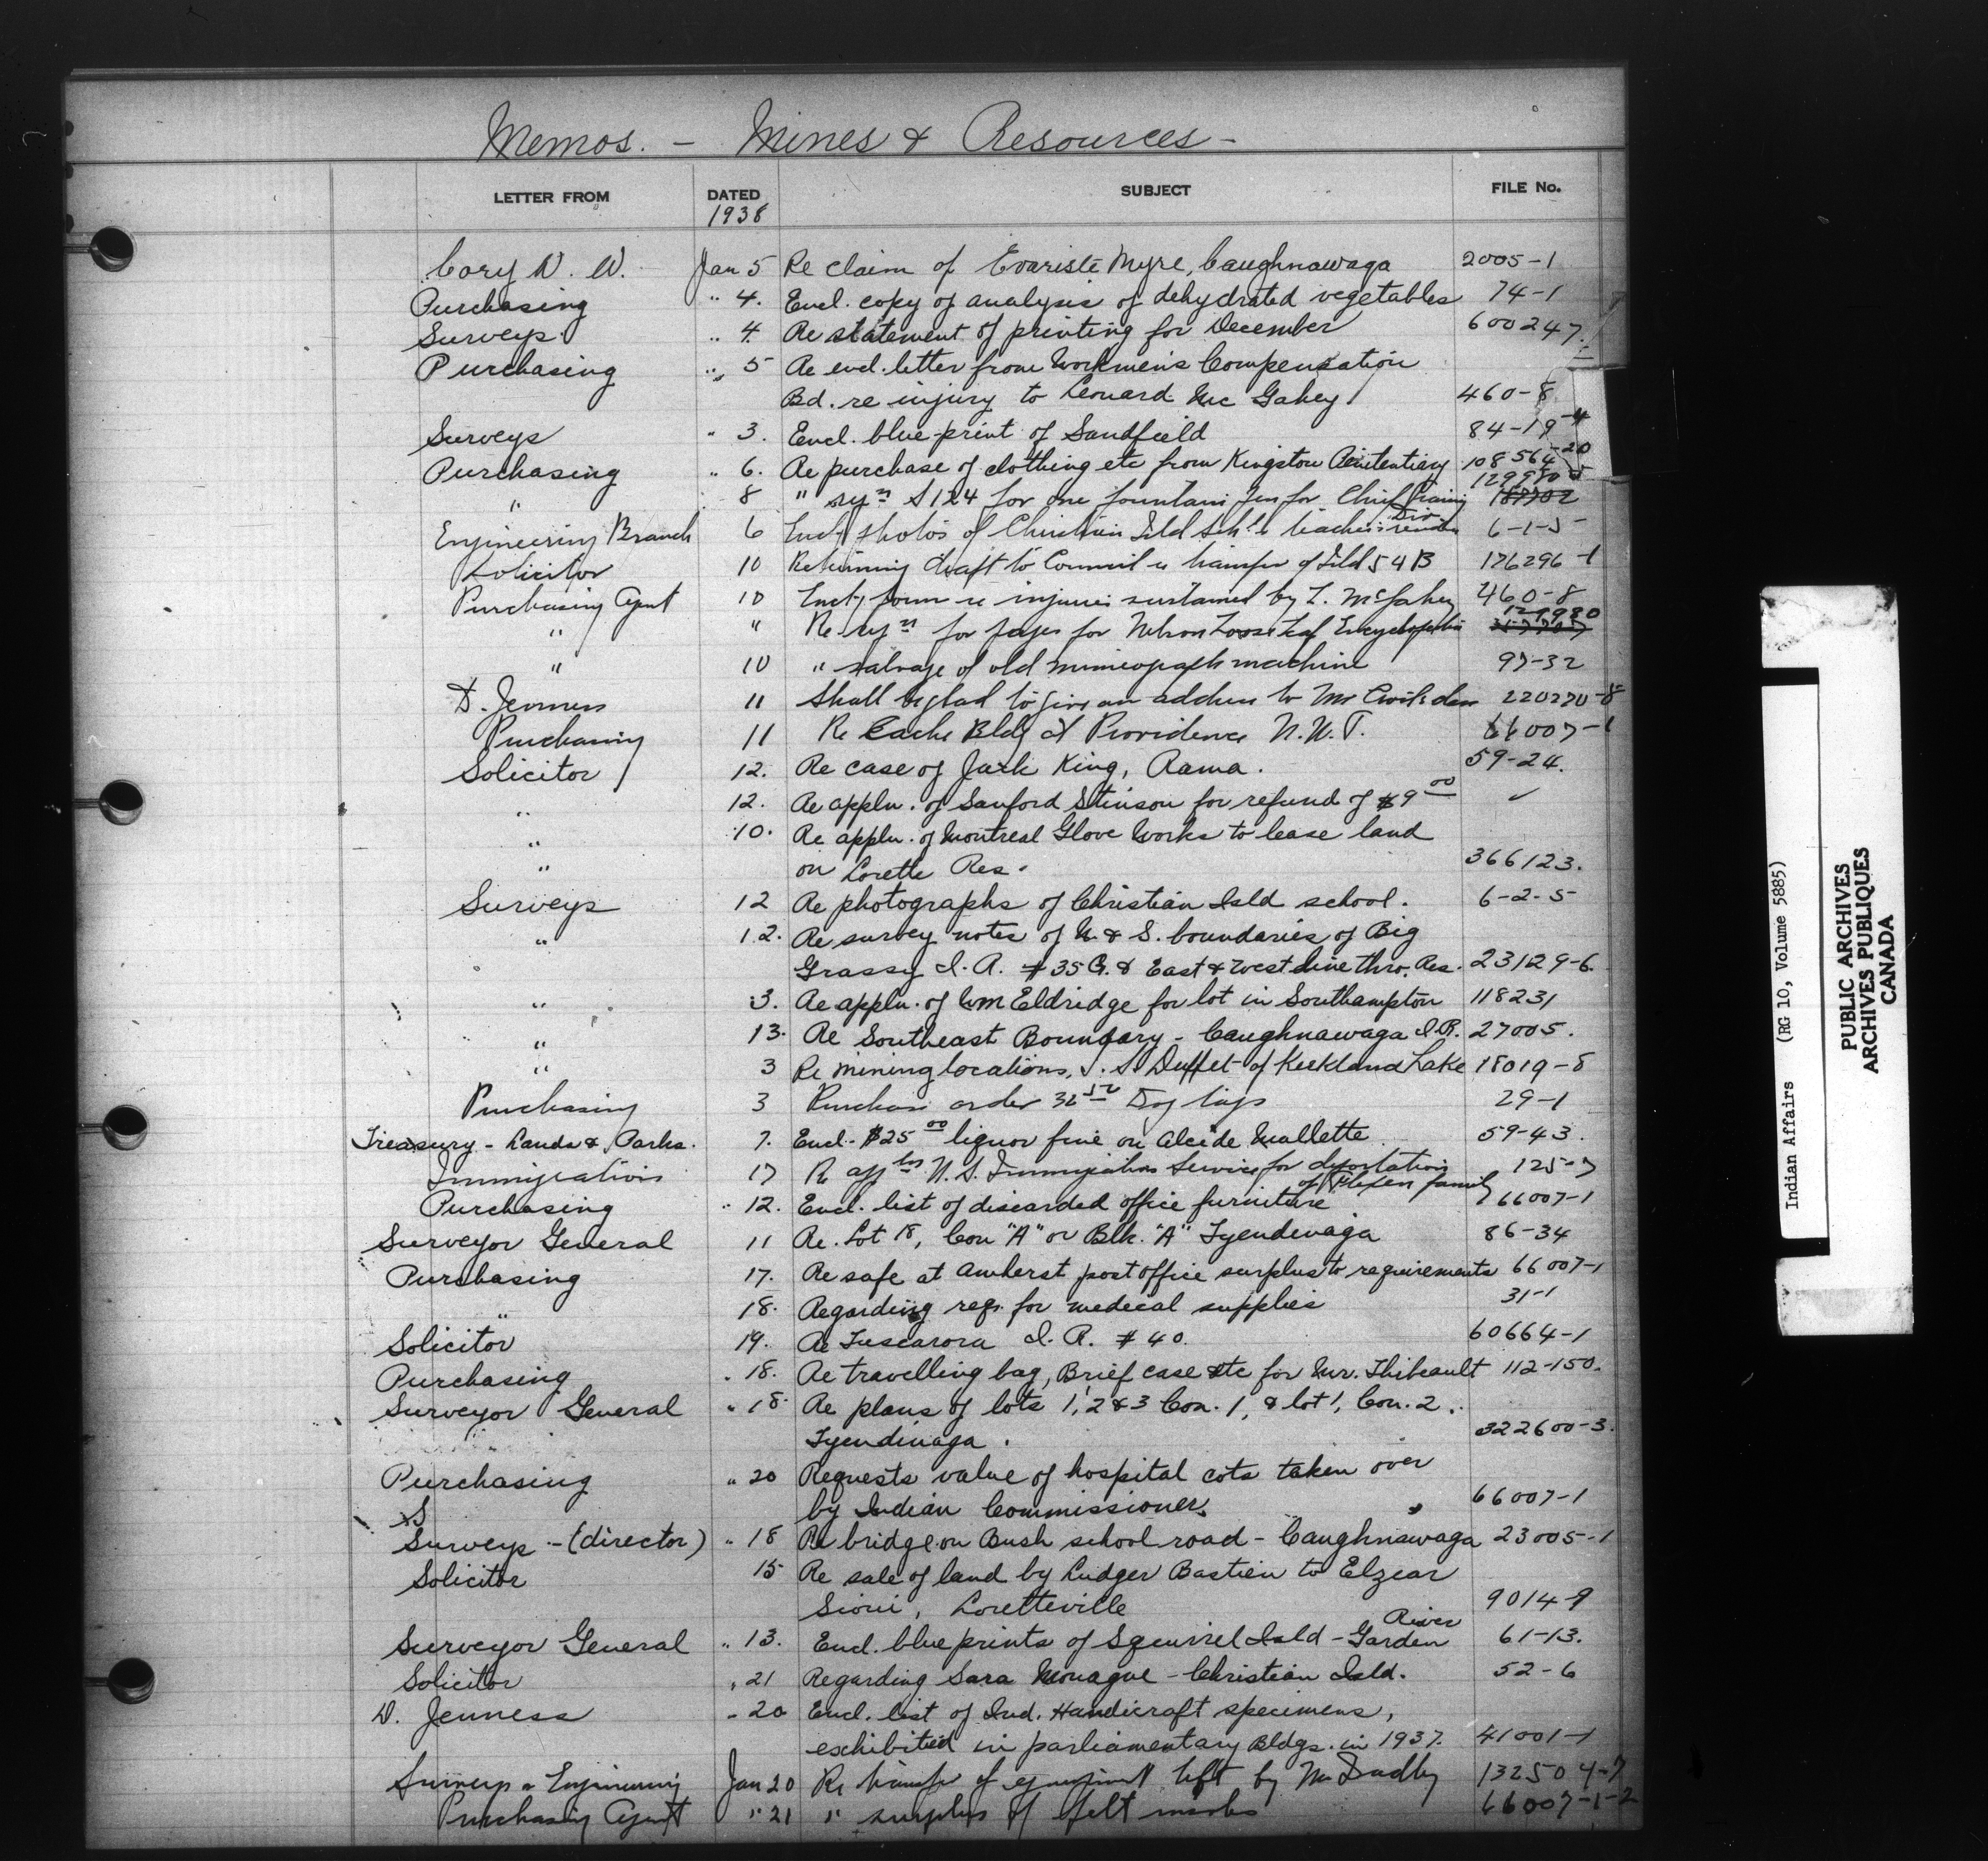 Memos. - Mines & Resources -
LETTER FROM DATED SUBJECT FILE No.
1938
Cory W. W. Jan 5 Re claim of Evariste Myre, Caughnawaga 2005-1
Purchasing " 4. Encl. copy of analysis of dehydrated vegetables 74-1
Surveys " 4. Re statement of printing for December 600247.
Purchasing " 5 Re encl. letter from Workmen's Compensation
Bd. re injury to Leonard Mc Gahey 460-8
Surveys " 3. Encl. blue-print of Sandfield 84-19-4
Purchasing " 6. Re purchase of clothing etc from Kingston Penitentiary 108564-20
" 8 " syn S124 for one fountain pen for Chief Training 129980
Div.
Engineering Branch 6 Encl photos of Christian Isld Schl & teachers 6-1-5
Solicitor 10 Returning draft to Council re transfer of Isld 54B 176296-1
Purchasing Agent 10 Encl form re injuries sustained by L. McGahey 460-8
" " Re for pages for Nelson Loose Leaf Encyclopedia 129980
" 10 " salvage of old mimeograph machine 97-32
D. Jenness 11 Shall be glad to give an address to Mr 220270-8
Purchasing 11 Re Cache Bldg at Providence N.W.T. 66007-1
Solicitor 12. Re case of Jack King, Rama. 59-24.
" 12. Re appln. of Sanford Stinson for refund of $9 00 ✓
" 10. Re appln. of Montreal Glove Works to lease land
" on Lorette Res. 366123.
Surveys 12 Re photographs of Christian Isld school. 6-2-5
" 12. Re survey notes of N. & S. boundaries of Big
Grassy I.R. #35G. & East & West line thro. Res. 23129-6.
" 3. Re appln. of Wm Eldridge for lot in Southampton 118231
" 13. Re Southeast Boundary - Caughnawaga I.R. 27005.
" 3 Re mining locations, J. S. Duffet of Kirkland Lake 18019-8
Purchasing 3 Purchase order 32 50 Dog tags 29-1
Treasury - Lands & Parks. 7. Encl. $25 00 liquor fine on Alcide Mallette 59-43.
Immigration 17 Re U.S. Immigration Service for deportation 125-7
of family
Purchasing " 12. Encl. list of discarded office furniture 66007-1
Surveyor General 11 Re. Lot 18, Con "A" or Blk. "A" Tyendinaga 86-34
Purchasing 17. Re safe at Amherst post office surplus to requirements 66007-1
" 18. Regarding reqn. for medical supplies 31-1
Solicitor 19. Re Tuscarora I.R. #40. 60664-1
Purchasing " 18. Re travelling bag, Brief case etc for Mr. Thibeault 112-150.
Surveyor General " 18. Re plans of lots 1, 2 & 3 Con. 1, & lot 1, Con. 2.
Tyendinaga. 322600-3.
Purchasing " 20 Requests value of hospital cots taken over
by Indian Commissioner. 66007-1
S
Surveys - (director) " 18 Re bridge on Bush school road - Caughnawaga 23005-1
Solicitor 15 Re sale of land by Ludger Bastien to Elzear
Sioui, Loretteville 9014-9
River
Surveyor General " 13. Encl. blue prints of Squirrel Isld - Garden 61-13.
Solicitor " 21 Regarding Sara Monague - Christian Isld. 52-6
D. Jenness " 20 Encl. list of Ind. Handicraft specimens,
exhibited in parliamentary Bldgs. in 1937. 41001-1
Surveys & Engineering Jan 20 Re transfer of equipment left by Mr 132504-7
Purchasing Agent " 21 " surplus of felt 66007-1-2
Indian Affairs (RG 10, Volume 5885)
PUBLIC ARCHIVES
ARCHIVES PUBLIQUES
CANADA